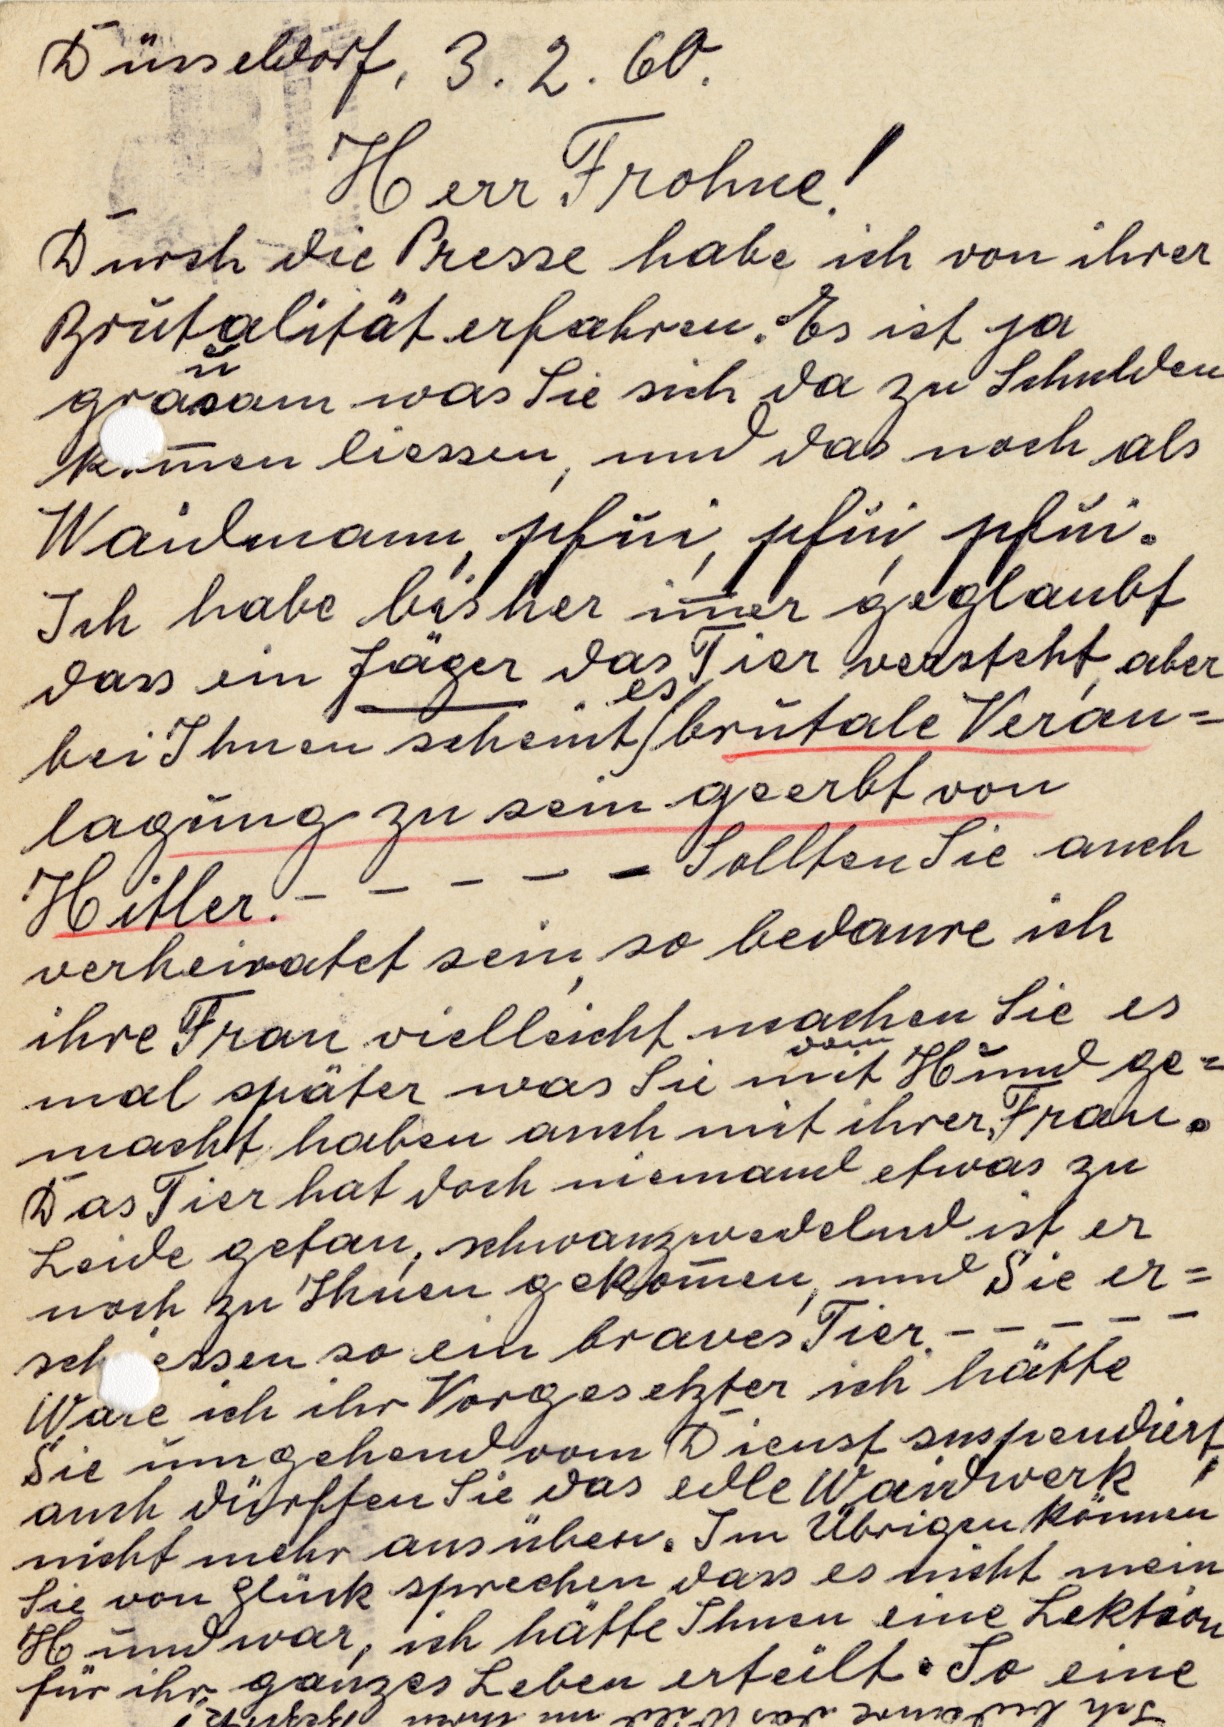 Düsseldorf, 3. 2. 60.
Herr Frohne!
Durch die Presse habe ich von ihrer
Brutalität erfahren. Es ist ja
grausam was Sie sich da zu Schulden
kom̅en liessen, und das noch als
Waidmann, pfui, pfui, pfui.
Ich habe bisher im̅er geglaubt
dass ein Jäger das Tier versteht, aber
bei Ihnen scheint es brutale Veran=
lagung zu sein geerbt von
Hitler. – – – – – Sollten Sie auch
verheiratet sein, so bedaure ich
ihre Frau vielleicht machen Sie es
mal später was Sie mit vom Hund ge=
macht haben auch mit ihrer Frau.
Das Tier hat doch niemand etwas zu
Leide getan, schwanzwedelnd ist er
noch zu Ihnen gekom̅en, und Sie er=
schiessen so ein braves Tier. – – – – –
Wäre ich ihr Vorgesetzter ich hätte
Sie umgehend vom Dienst suspendiert,
auch dürften Sie das edle Waidwerk
nicht mehr ausüben. Im Übrigen können
Sie von Glück sprechen dass es nicht mein
Hund war, ich hätte Ihnen eine Lektion
für ihr ganzes Leben erteilt. So eine
Ich bedaure das Wild in